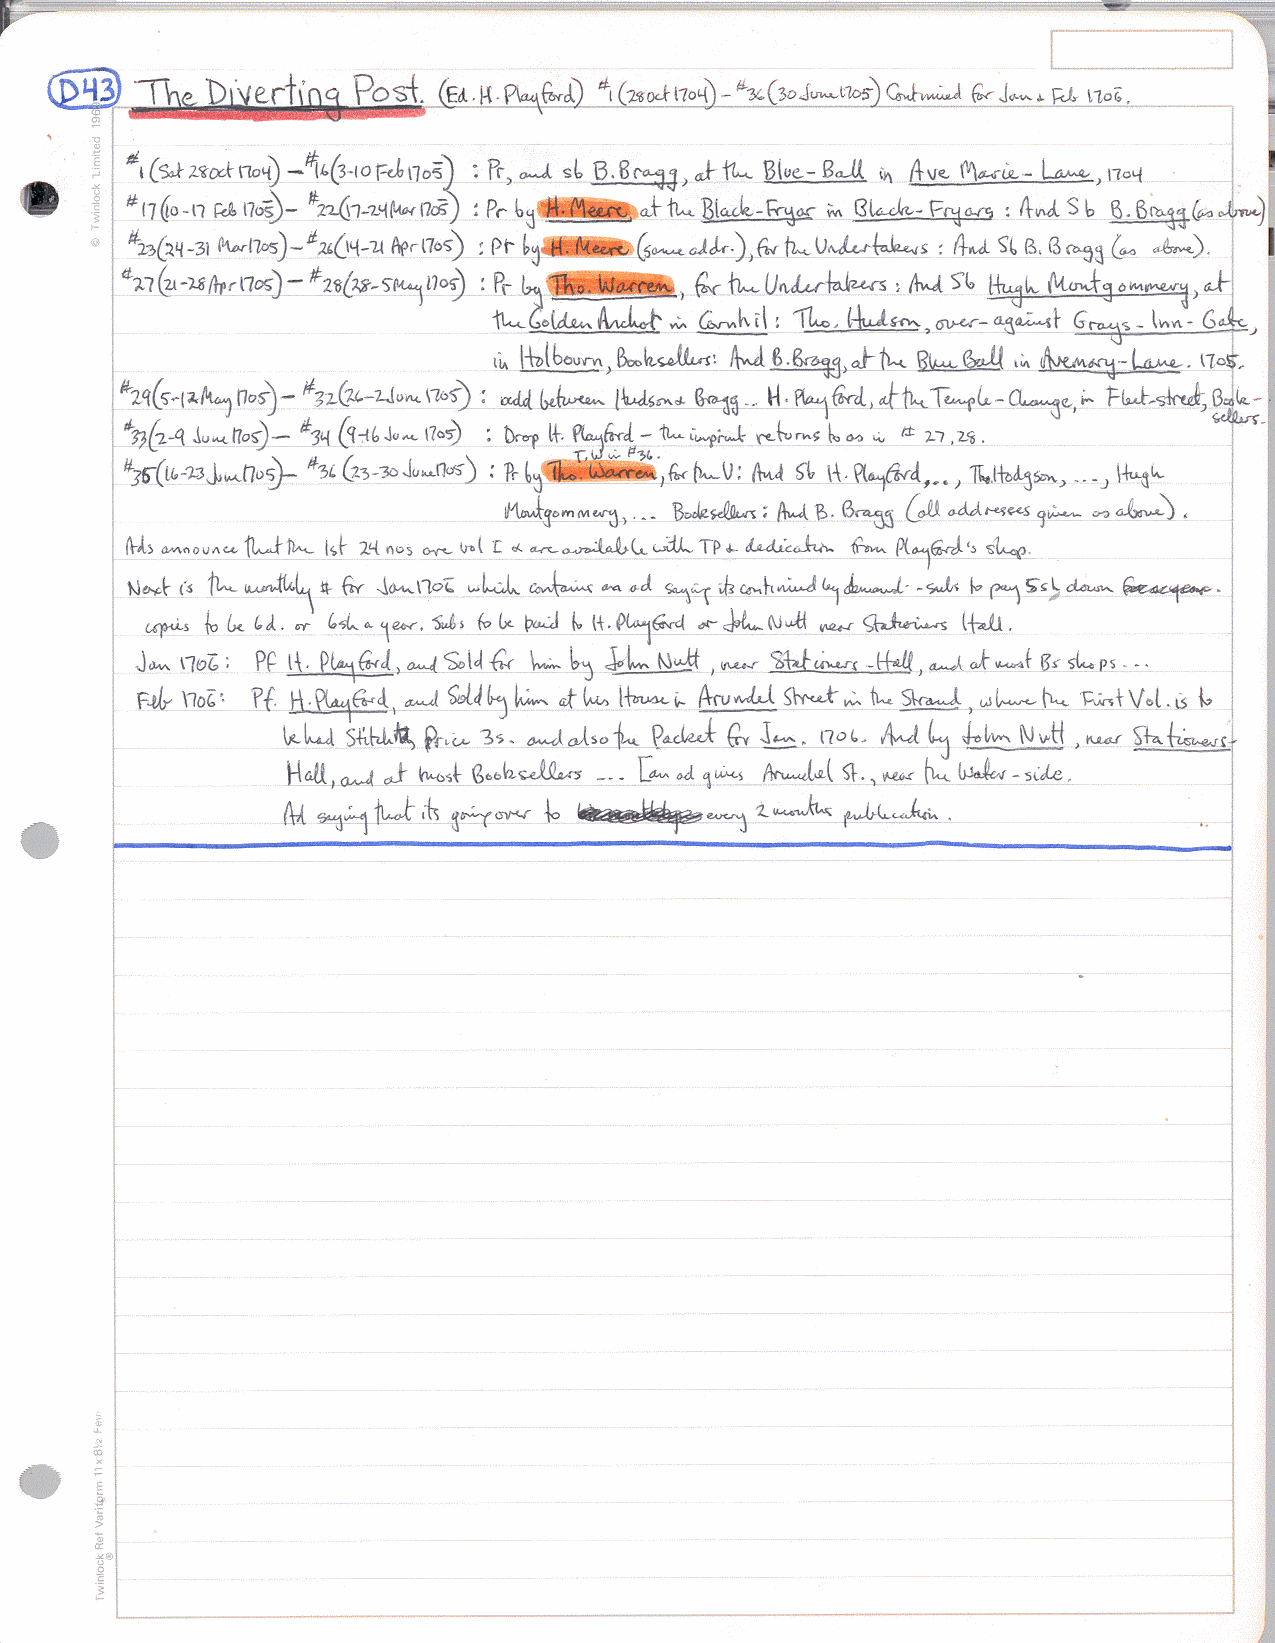 D43 The Diverting Post. (Ed. H. Playford) #1 (28 Oct 1704) – #36 (30 June 1705) Continued for Jan & Feb 1706.
#1 (Sat 28 Oct 1704) – #16 (3-10 Feb 1705) : Pr, and sb B. Bragg, at the Blue-Ball in Ave Marie-Lane, 1704
#17 (10-17 Feb 1705) – #22 (17-24 Mar 1705) : Pr by H. Meere, at the Black-Fryar in Black-Fryars : And Sb B. Bragg (as above)
#23 (24-31 Mar 1705) – #26 (14-21 Apr 1705) : Pr by H. Meere (same addr.), for the Undertakers : And Sb B. Bragg (as above).
#27 (21-28 Apr 1705) – #28 (28-5 May 1705) : Pr by Tho. Warren, for the Undertakers : And Sb Hugh Montgommery, at
the Golden Anchor in Cornhil : Tho. Hudson, over-against Grays-Inn-Gate,
in Holbourn, Booksellers: And B. Bragg, at the Blue Ball in Avemary-Lane. 1705.
#29 (5-12 May 1705) – #32 (26-2 June 1705) : add between Hudson & Bragg... H. Playford, at the Temple-Change, in Fleet-street, Book-
sellers.
#33 (2-9 June 1705) – #34 (9-16 June 1705) : Drop H. Playford – the imprint returns to as in # 27, 28.
T. W in #36.
#35 (16-23 June 1705) – #36 (23-30 June 1705) : Pr by Tho. Warren, for the U: And Sb H. Playford, ..., Tho. Hodgson, ..., Hugh
Montgommery, ... Booksellers : And B. Bragg (all addresses given as above).
Ads announce that the 1st 24 nos are vol I & are available with TP & dedication from Playford's shop.
Next is the monthly # for Jan 1706 which contains an ad saying its continued by demand - subs to pay 5sh down for a year.
copies to be 6d. or 6sh a year. Subs to be paid to H. Playford or John Nutt near Stationers Hall.
Jan 1706 : Pf H. Playford, and Sold for him by John Nutt, near Stationers-Hall, and at most Bs shops ...
Feb 1706 : Pf. H. Playford, and Sold by him at his House in Arundel Street in the Strand, where the First Vol. is to
be had Stitcht, Price 3s. and also the Packet for Jan. 1706. And by John Nutt, near Stationers-
Hall, and at most Booksellers ... [an ad gives Arundel St., near the Water-side.
Ad saying that its going over to every 2 months publication.
© Twinlock Limited 196
Twinlock Ref Variform 11 x 8½